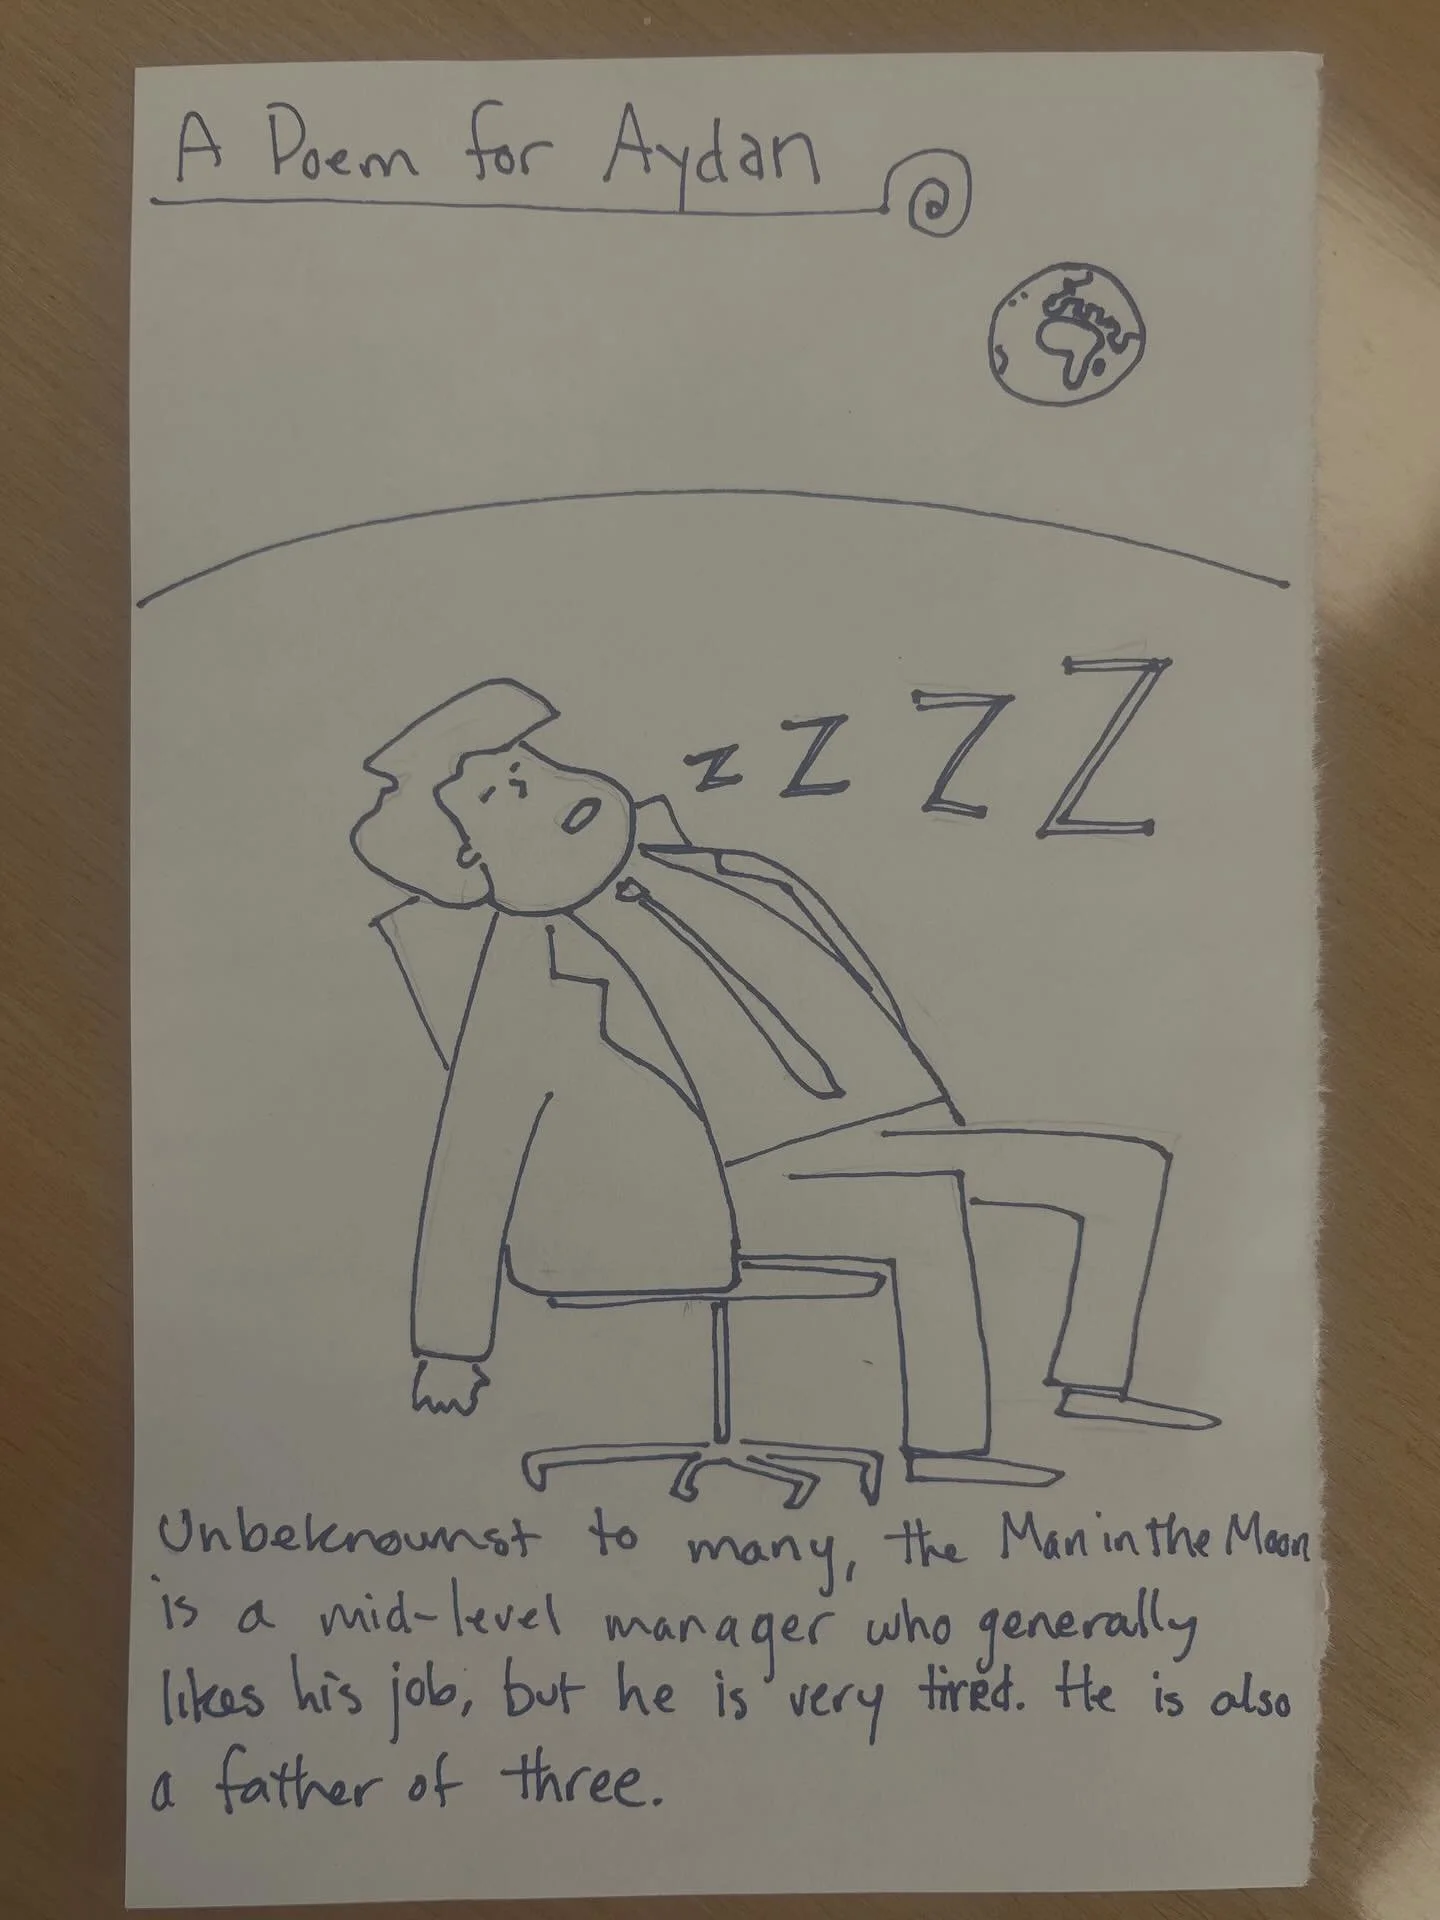 A Poem for Aydan
z z z z
Unbeknownst to many, the Man in the Moon
is a mid-level manager who generally
likes his job, but he is very tired. He is also
a father of three.